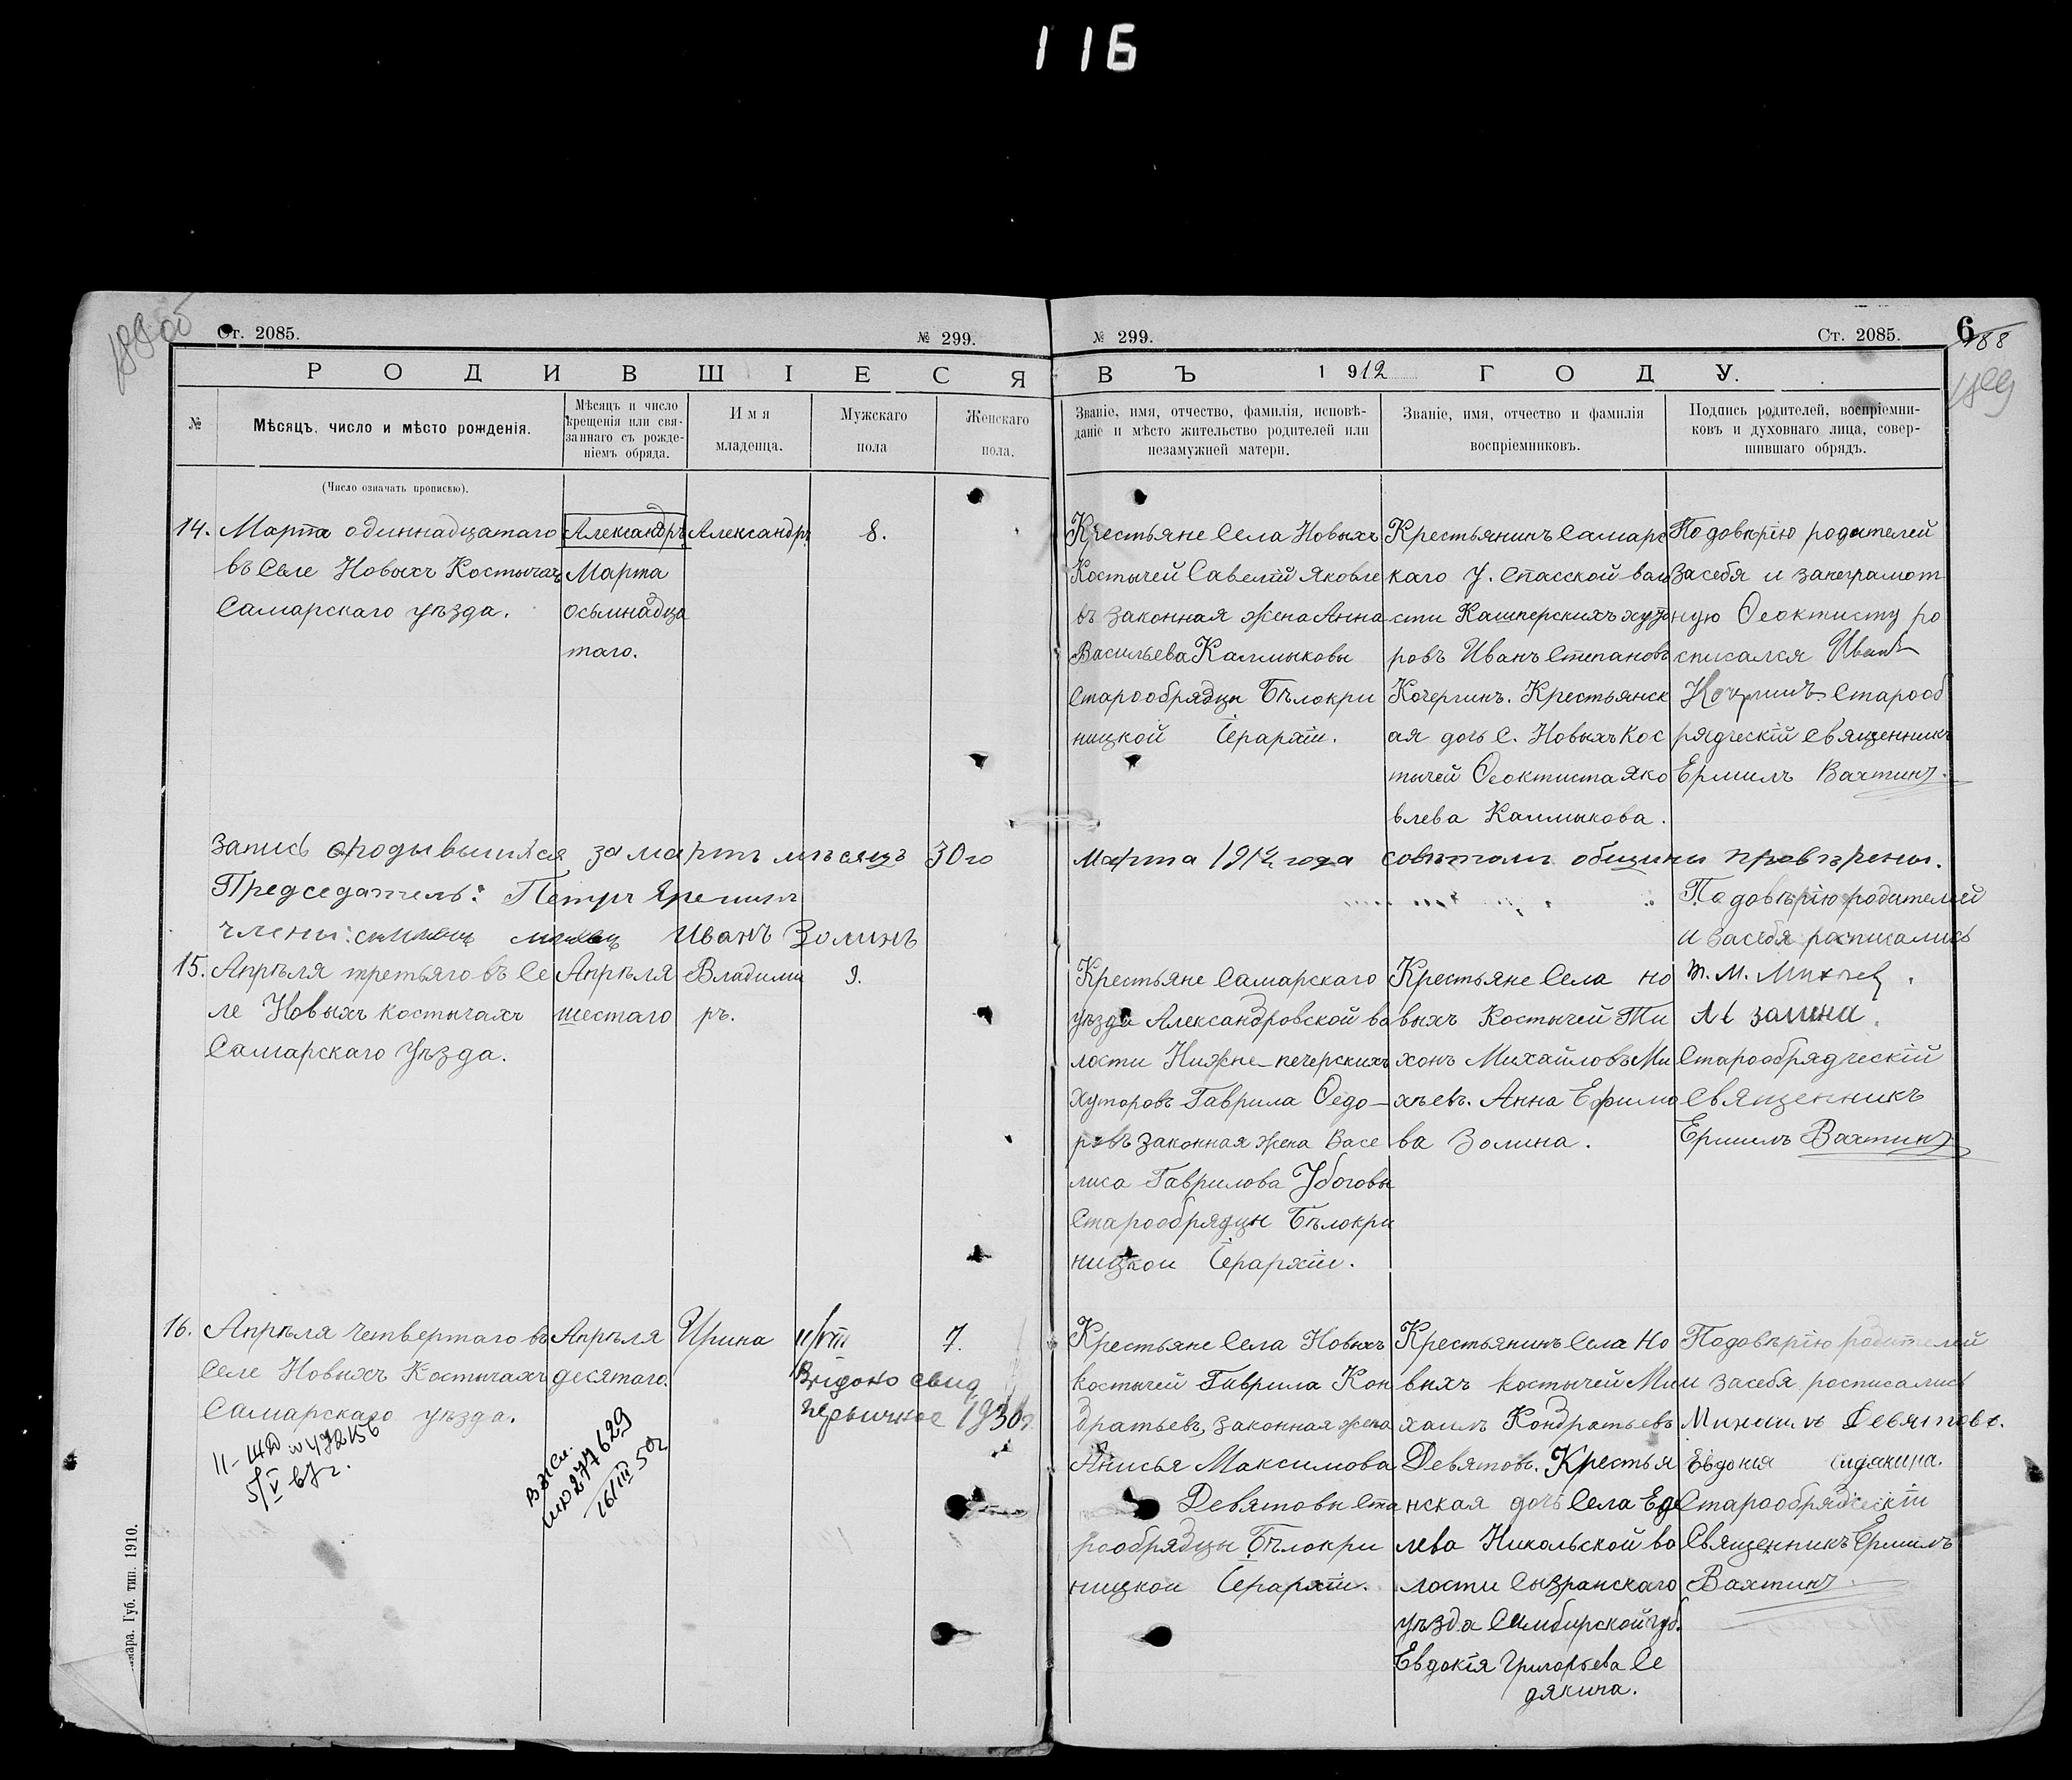 116
188об
Ст. 2085.
№ 299.
№ 299.
Ст. 2085.
6
188
189
РОДИВШІЕСЯ
ВЪ 1912 ГОДУ.
№
Мѣсяцъ, число и мѣсто рожденія.
Мѣсяцъ и число
крещенія или свя-
заннаго съ рожде-
ніемъ обряда.
Имя
младенца.
Мужскаго
пола
Женскаго
пола.
Званіе, имя, отчество, фамилія, исповѣ-
даніе и мѣсто жительство родителей или
незамужней матери.
Званіе, имя, отчество и фамилія
воспріемниковъ.
Подпись родителей, воспріемни-
ковъ и духовнаго лица, совер-
шившаго обрядъ.
(Число означать прописью).
14.
Марта одиннадцатаго
въ Селе Новыхъ Костычахъ
Самарскаго уѣзда.
Александръ
Марта
осьмнадца
таго.
Александръ
8.
Крестьяне Села Новыхъ
Костычей Савелій Яковле
въ законная жена Анна
Васильева Калмыковы
Старообрядцы Бѣлокри
ницкой Іерархіи.
Крестьянинъ Самарс
каго у. Спасской воло
сти Кашперскихъ хуто
ровъ Иванъ Степановъ
Кочергинъ. Крестьянск
ая дочь С. Новыхъ Кос
тычей Ѳеоктиста Яко
влева Калмыкова.
По довѣрію родителей
за себя и за неграмот
ную Ѳеоктисту ро
списался Иванъ
Кочергинъ Старооб
рядческій священникъ
Ермилъ Вахтинъ.
Запись о родывшихся за мартъ мѣсяцъ 30го
Марта 1912 года совѣтомъ общины провѣрены.
Председатель: Петръ Яренинъ
члены: Иванъ Золинъ
15.
Апрѣля третьяго въ Се
ле Новыхъ Костычахъ
Самарскаго Уѣзда.
Апрѣля
шестаго
Владими
ръ.
9.
Крестьяне Самарскаго
уѣзда Александровской во
лости Нижне-печерскихъ
хуторовъ Гаврила Ѳедо-
ровъ законная жена Васе
лиса Гаврилова Убоговы
Старообрядцы Бѣлокри
ницкои Іерархіи.
Крестьяне Села но
выхъ Костычей Ти
хонъ Михайловъ Ми
хѣевъ. Анна Ефимо
ва Золина.
По довѣрію родителей
и засебя росписались
Т. М. Михѣев
А Е Золина.
Старообрядческій
Священникъ
Ермилъ Вахтинъ
16.
Апрѣля четвертаго въ
Селе Новыхъ Костычахъ
Самарскаго уѣзда.
Апрѣля
десятаго.
Ирина
11/VIII
Видано свид
первичное 1930г.
7.
5/V 67г.
277629
16/III 50г
Крестьяне Села Новыхъ
Костычей Гаврила Кон
дратьевъ, законная жена
Анисья Максимова
Девятовы Ста
рообрядцы Бѣлокри
ницкои Іерархіи.
Крестьянинъ Села Но
выхъ Костычей Ми
хаилъ Кондратьевъ
Девятовъ. Крестья
нская дочь Села Еде
лева Никольской во
лости Сызранскаго
уѣзда Симбирской губ.
Евдокія Григорьева Се
дякина.
По довѣрію родителей
и засебя росписались
Михаилъ Девятовъ.
Евдокия Сидякина.
Старообрядческіи
Священникъ Ермилъ
Вахтинъ
Губ. тип. 1910.